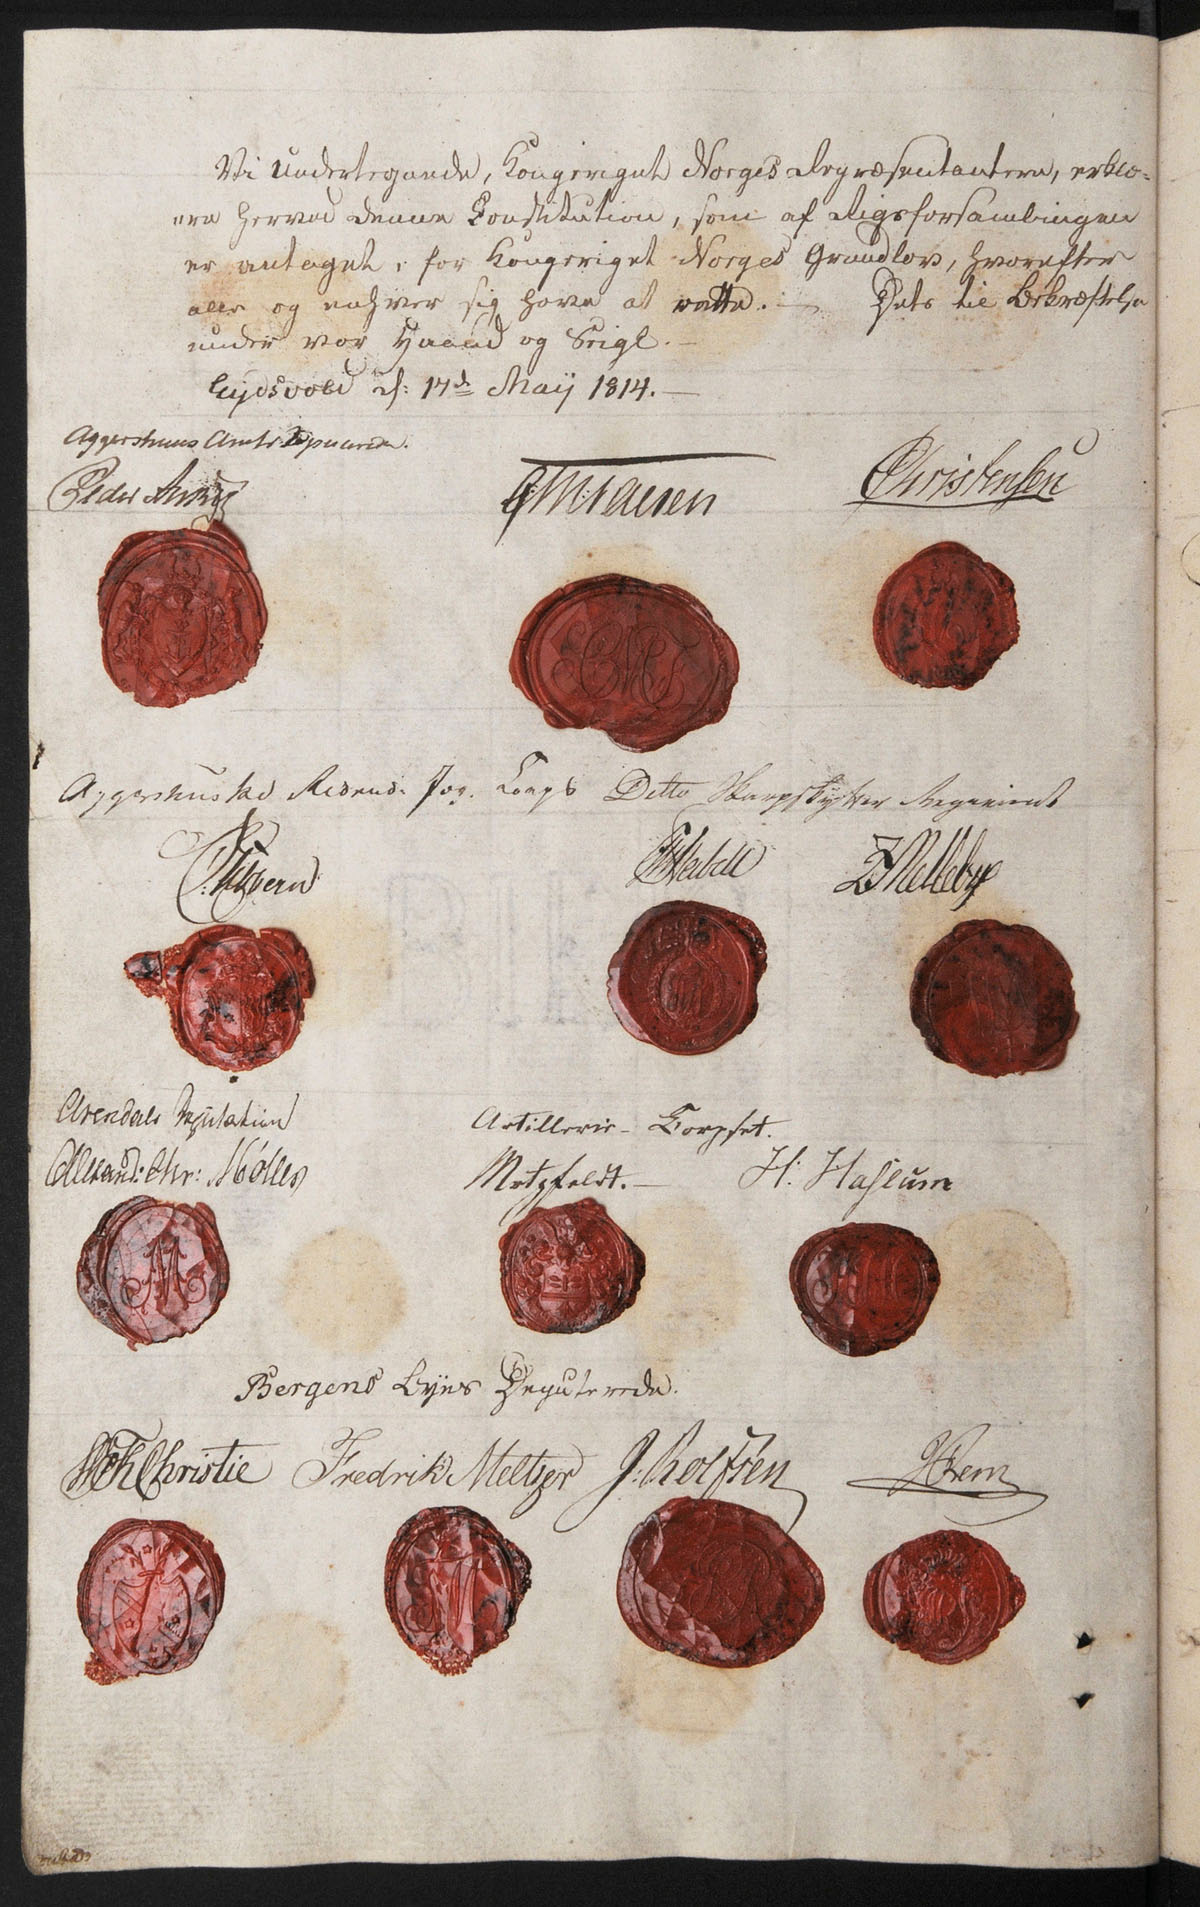 Vi undertegnede, Kongeriget Norges Repræsentantere, erklæ-
ere herved denne Constitution, som af Rigsforsamlingen
er antaget, for Kongeriget Norges Grundlov, hvorefter
alle og enhver sig have at rette. — Dets til Bekræftelse
under vor Haand og Seigl. —
Eydsvold d: 17de Maÿ 1814. —
Aggershuus Amts Deputerede.
Peder Anker Christensen
Aggershuske Ridende Jæg. Corps Ditto Skarpskytter Regiment
Weibell Z Mellebye
Arendals Deputation Artillerie- Corpset.
Alexand: Chr: Møller Motzfeldt. — H: Haslum
Bergens Byes Deputerede.
WFK Christie Fredrik Meltzer J: Rolfsen JRem